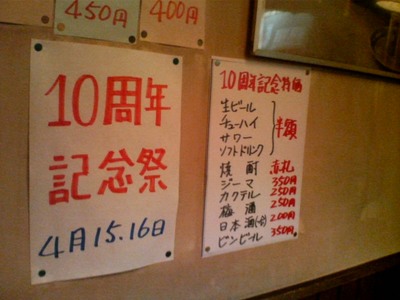 450円
400円
10周年
記念祭
4月15.16日
10周年記念特価
生ビール
チューハイ
サワー
ソフトドリンク
半額
焼酎 赤札
ジーマ 350円
カクテル 250円
梅酒 250円
日本酒(小) 200円
ビンビール 350円